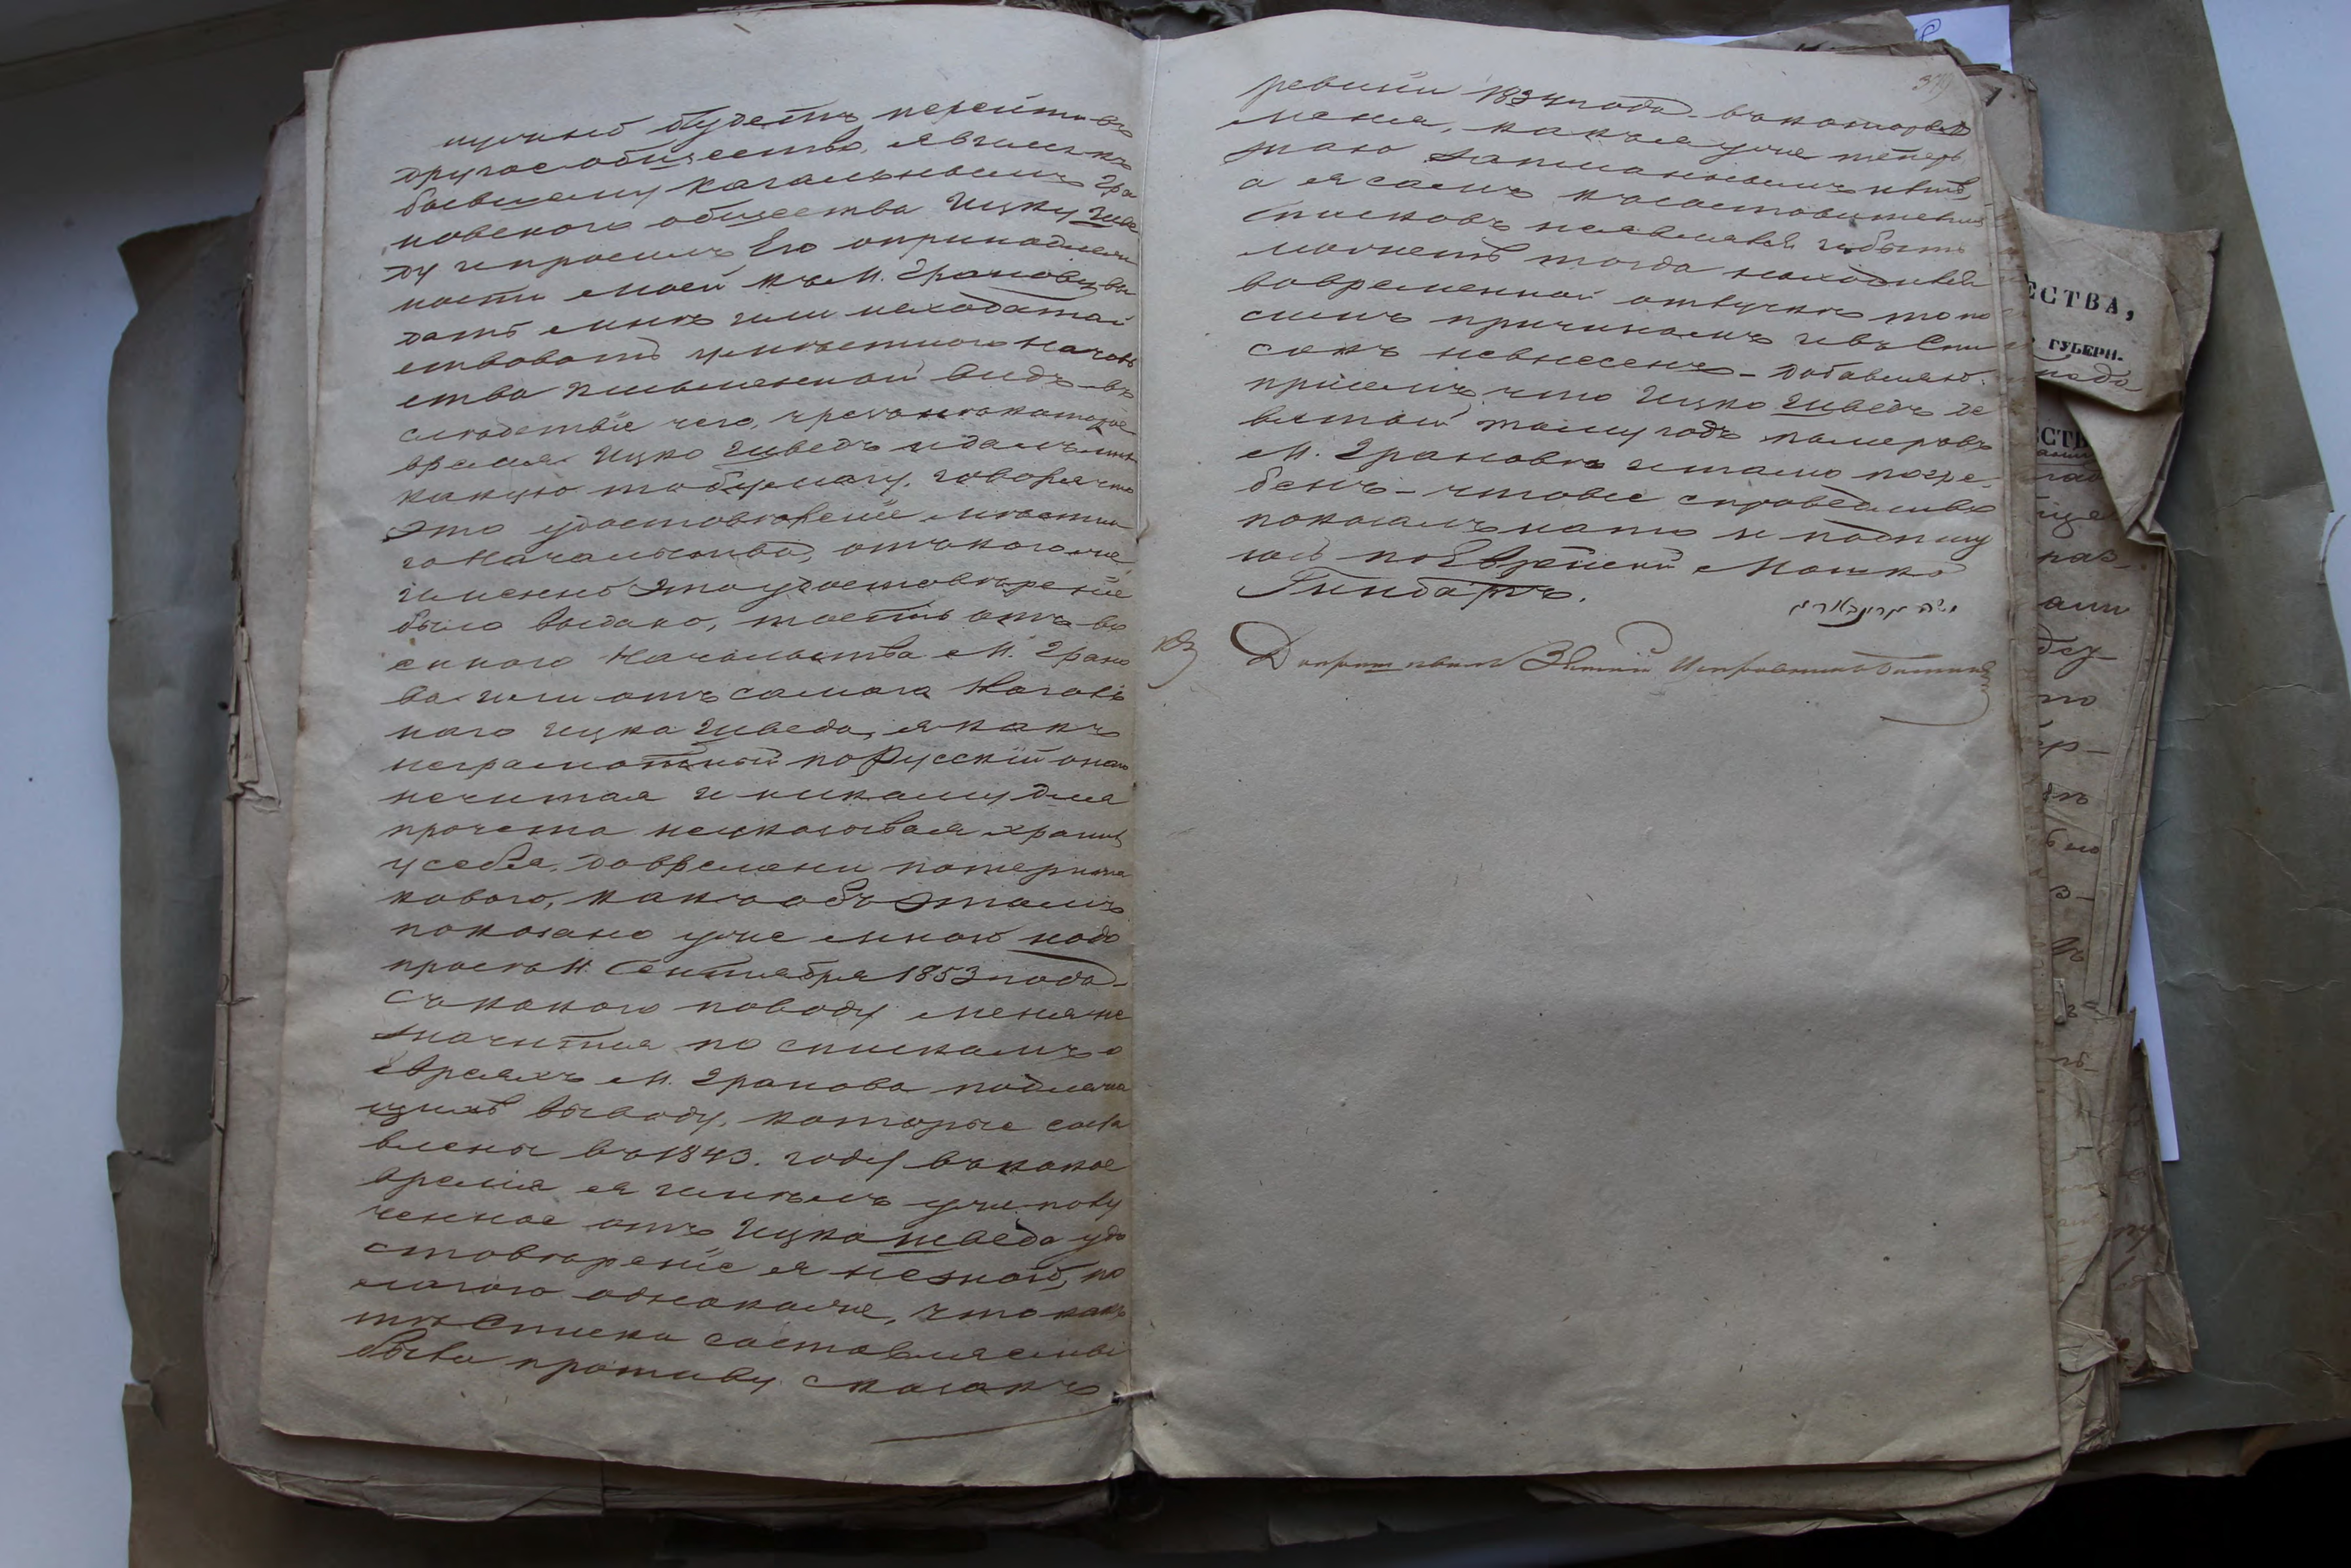 нужно будетъ перейти въ
другое общество, явился къ
бывшему кагальнымъ Гра
новскаго общества Ицку Шве
ду и просилъ Его о принадлеж
ности моей къ М. Гранову вы
дать мнѣ или исходатай
ствовать у мѣстнаго началь
ства письменной видъ – въ
слѣдствіе чего, чрезъ нѣкоторое
время Ицко Шведъ и далъ мнѣ
какую то бумагу, говоря что
это удостовѣреніе мѣстна
го Начальства, отъ кого же
именно это удостовѣреніе
было выдано, тоесть отъ во
еннаго Начальства М. Грано
ва или отъ самаго Кагаль
наго Ицка Шведа, я какъ
неграмотный по Русскій онаго
нечитая и никому для
прочета неуказывая хранилъ
у себя, до времени потери та
коваго, какъ объ этомъ
показано уже мною на до
просѣ 11 Сентября 1853 года –
съ какого поводу меня не
значится по спискамъ о
Евреяхъ М. Гранова подлежа
щихъ выводу, которые соста
влены въ 1843. году въ какое
время я имѣлъ уже полу
ченное отъ Ицка Шведа удо
стовѣреніе я незнаю, по
лагаю однакоже, что какъ
тѣ Списки составляемы
были противу сказокъ
ревизіи 1834 года въ которой
меня, какъ я уже теперь
знаю записаннымъ нѣтъ,
а я самъ къ составителямъ
Списковъ неявлялся и быть
можетъ тогда находился
вовременной отлучкѣ то по
симъ причинамъ и въ Спи
сокъ невнесенъ – добавляю
присемъ что Ицко Шведъ де
вятый тому годъ померъ въ
М. Грановѣ и тамо погре
бенъ – что все справедливо
показалъ на то и подпишу
юсь по Еврейски Мошко
Гинбаръ.
Допрашивалъ Земскій Исправникъ
ЕСТВА,
ГУБЕРН.